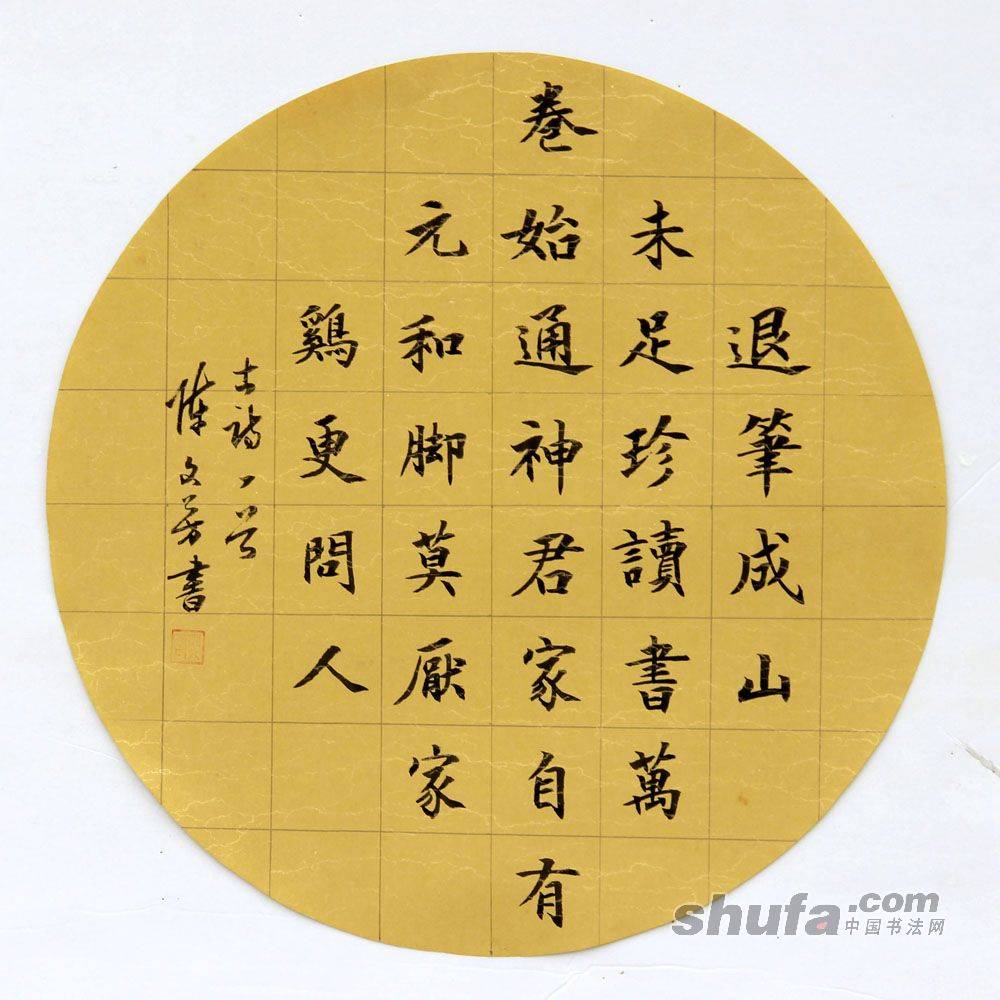 退筆成山
未足珍讀書萬
卷始通神君家自有
元和脚莫厭家
鷄更問人
古詩一首
陳文芳書
shufa.com
中国书法网